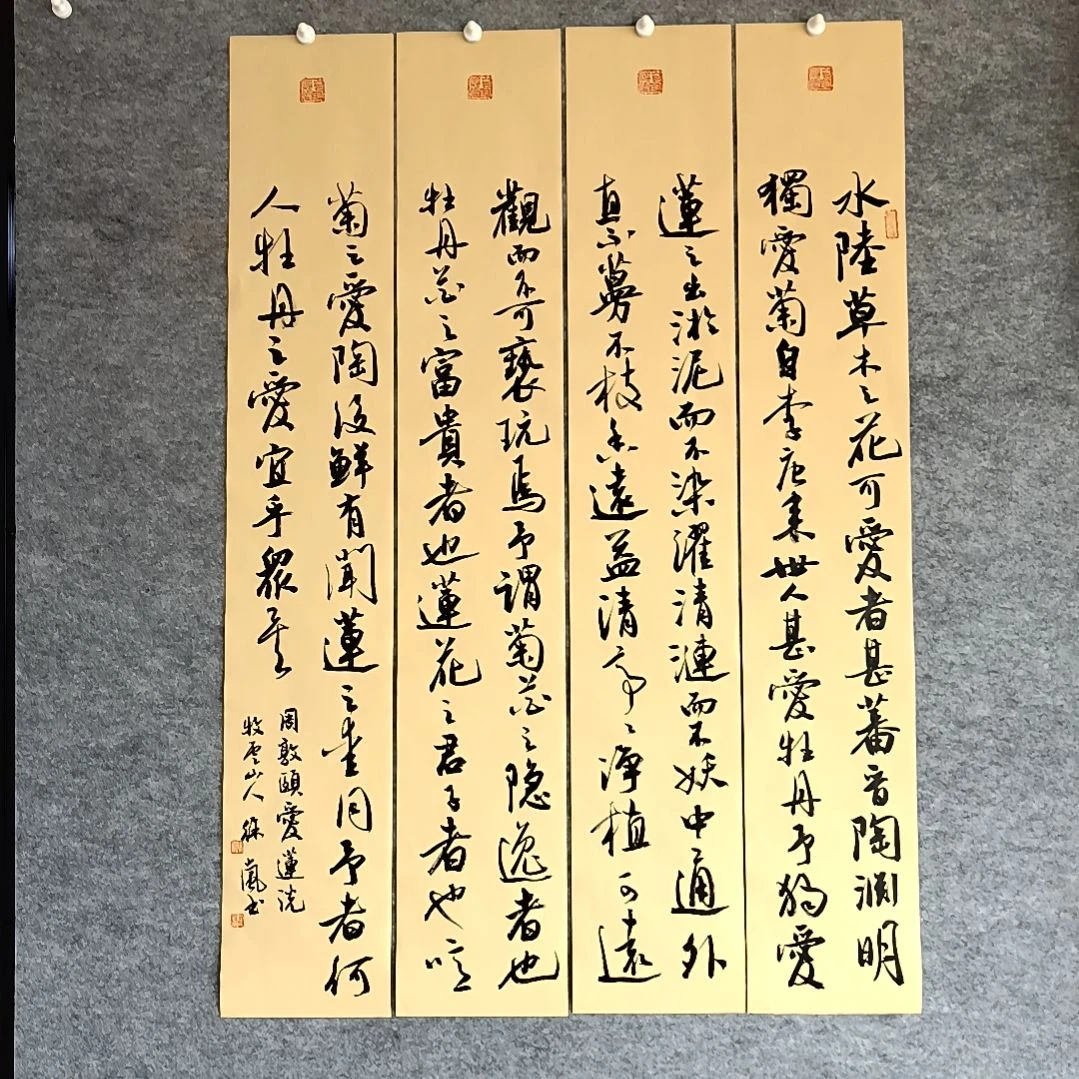 水陸草木之花可愛者甚蕃晋陶渊明
獨愛菊自李唐来世人甚愛牡丹予独愛
蓮之出淤泥而不染濯清漣而不妖中通外
直不蔓不枝香遠益清亭々淨植可遠
觀而不可褻玩焉予謂菊花之隐逸者也
牡丹花之富貴者也蓮花之君子者也噫
菊之愛陶後鮮有聞蓮之愛同予者何
人牡丹之愛宜乎眾矣
周敦頤愛蓮説
牧雲山人徐嵐书